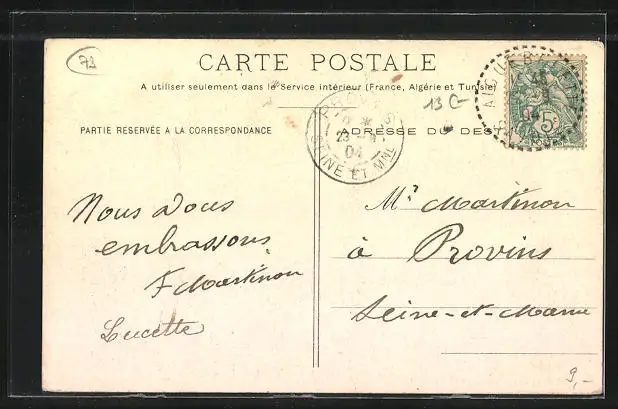 73
CARTE POSTALE
A utiliser seulement dans le Service intérieur (France, Algérie et Tunisie)
13 G
PARTIE RESERVÉE A LA CORRESPONDANCE
PROVINS
23
04
SEINE ET MNE
ADRESSE DU DEST
5c
Mr Martinon
à Provins
Seine-et-Marne
Nous vous
embrassons
F Martinon
Lucette
9,-